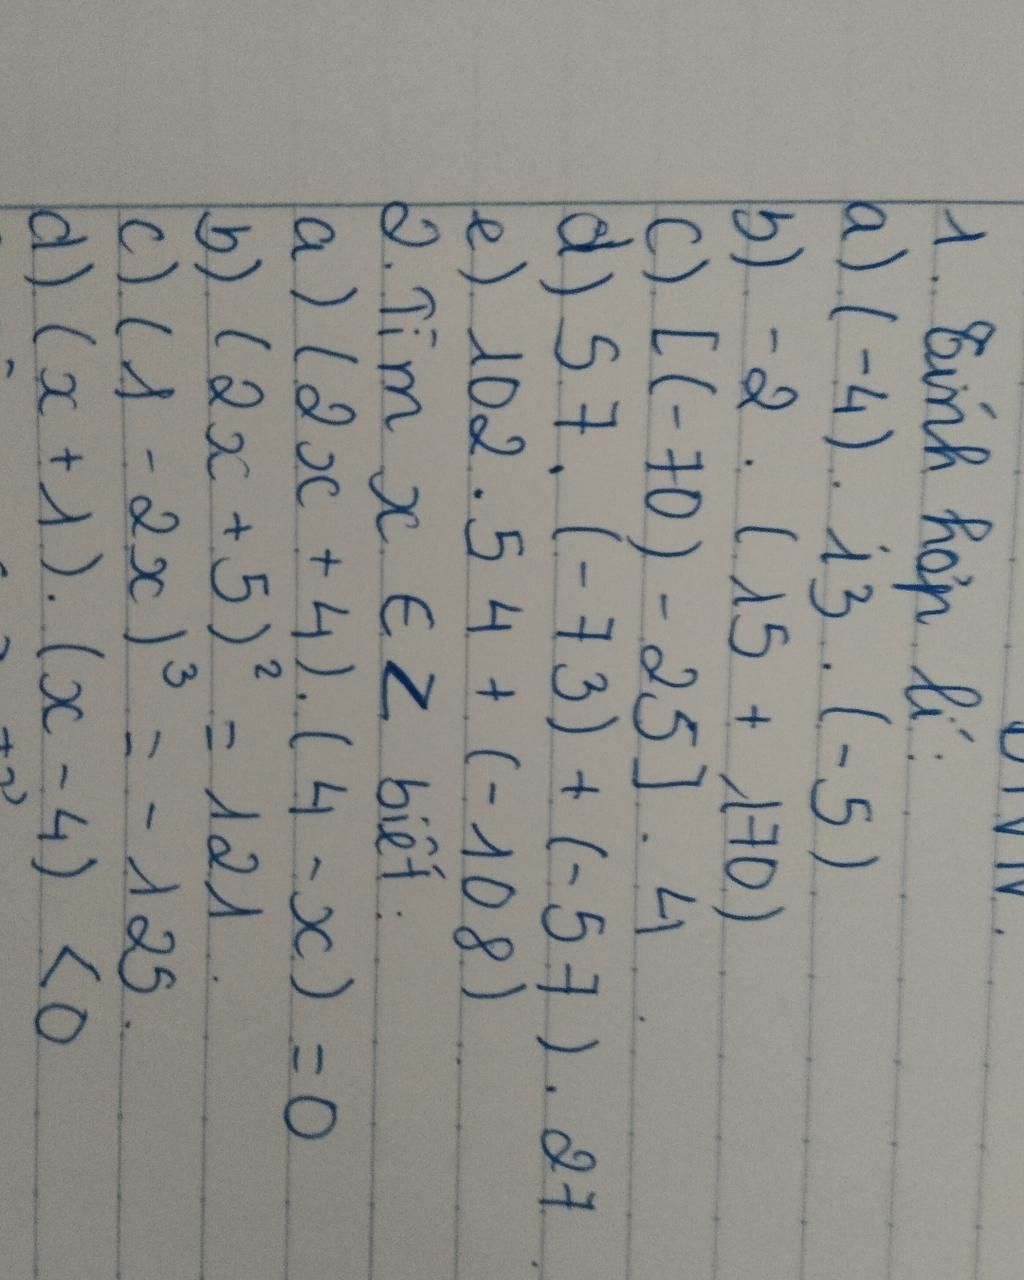 1. Tính hợp lí:
a) (-4) . 13 . (-5)
b) -2 . (15 + 170)
c) [(-70) - 25] . 4
d) 57 . (-73) + (-57) . 27
e) 102 . 54 + (-108)
2. Tìm x ∈ Z biết:
a) (2x + 4) . (4 - x) = 0
b) (2x + 5)² = 121.
c) (1 - 2x)³ = -125.
d) (x + 1) . (x - 4) < 0